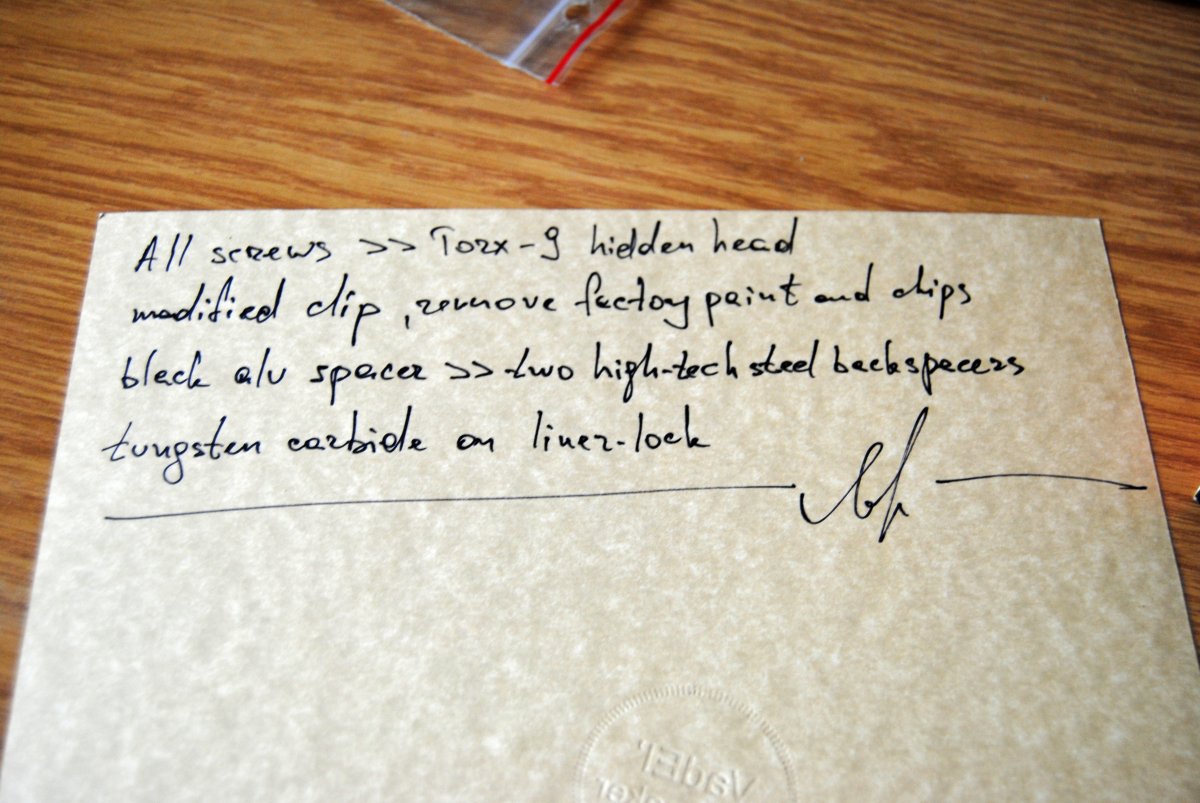 All screws >> Torx-9 hidden head
modified clip, remove factory paint and chips
black alu spacer >> two high-tech steel backspacers
tungsten carbide on liner-lock